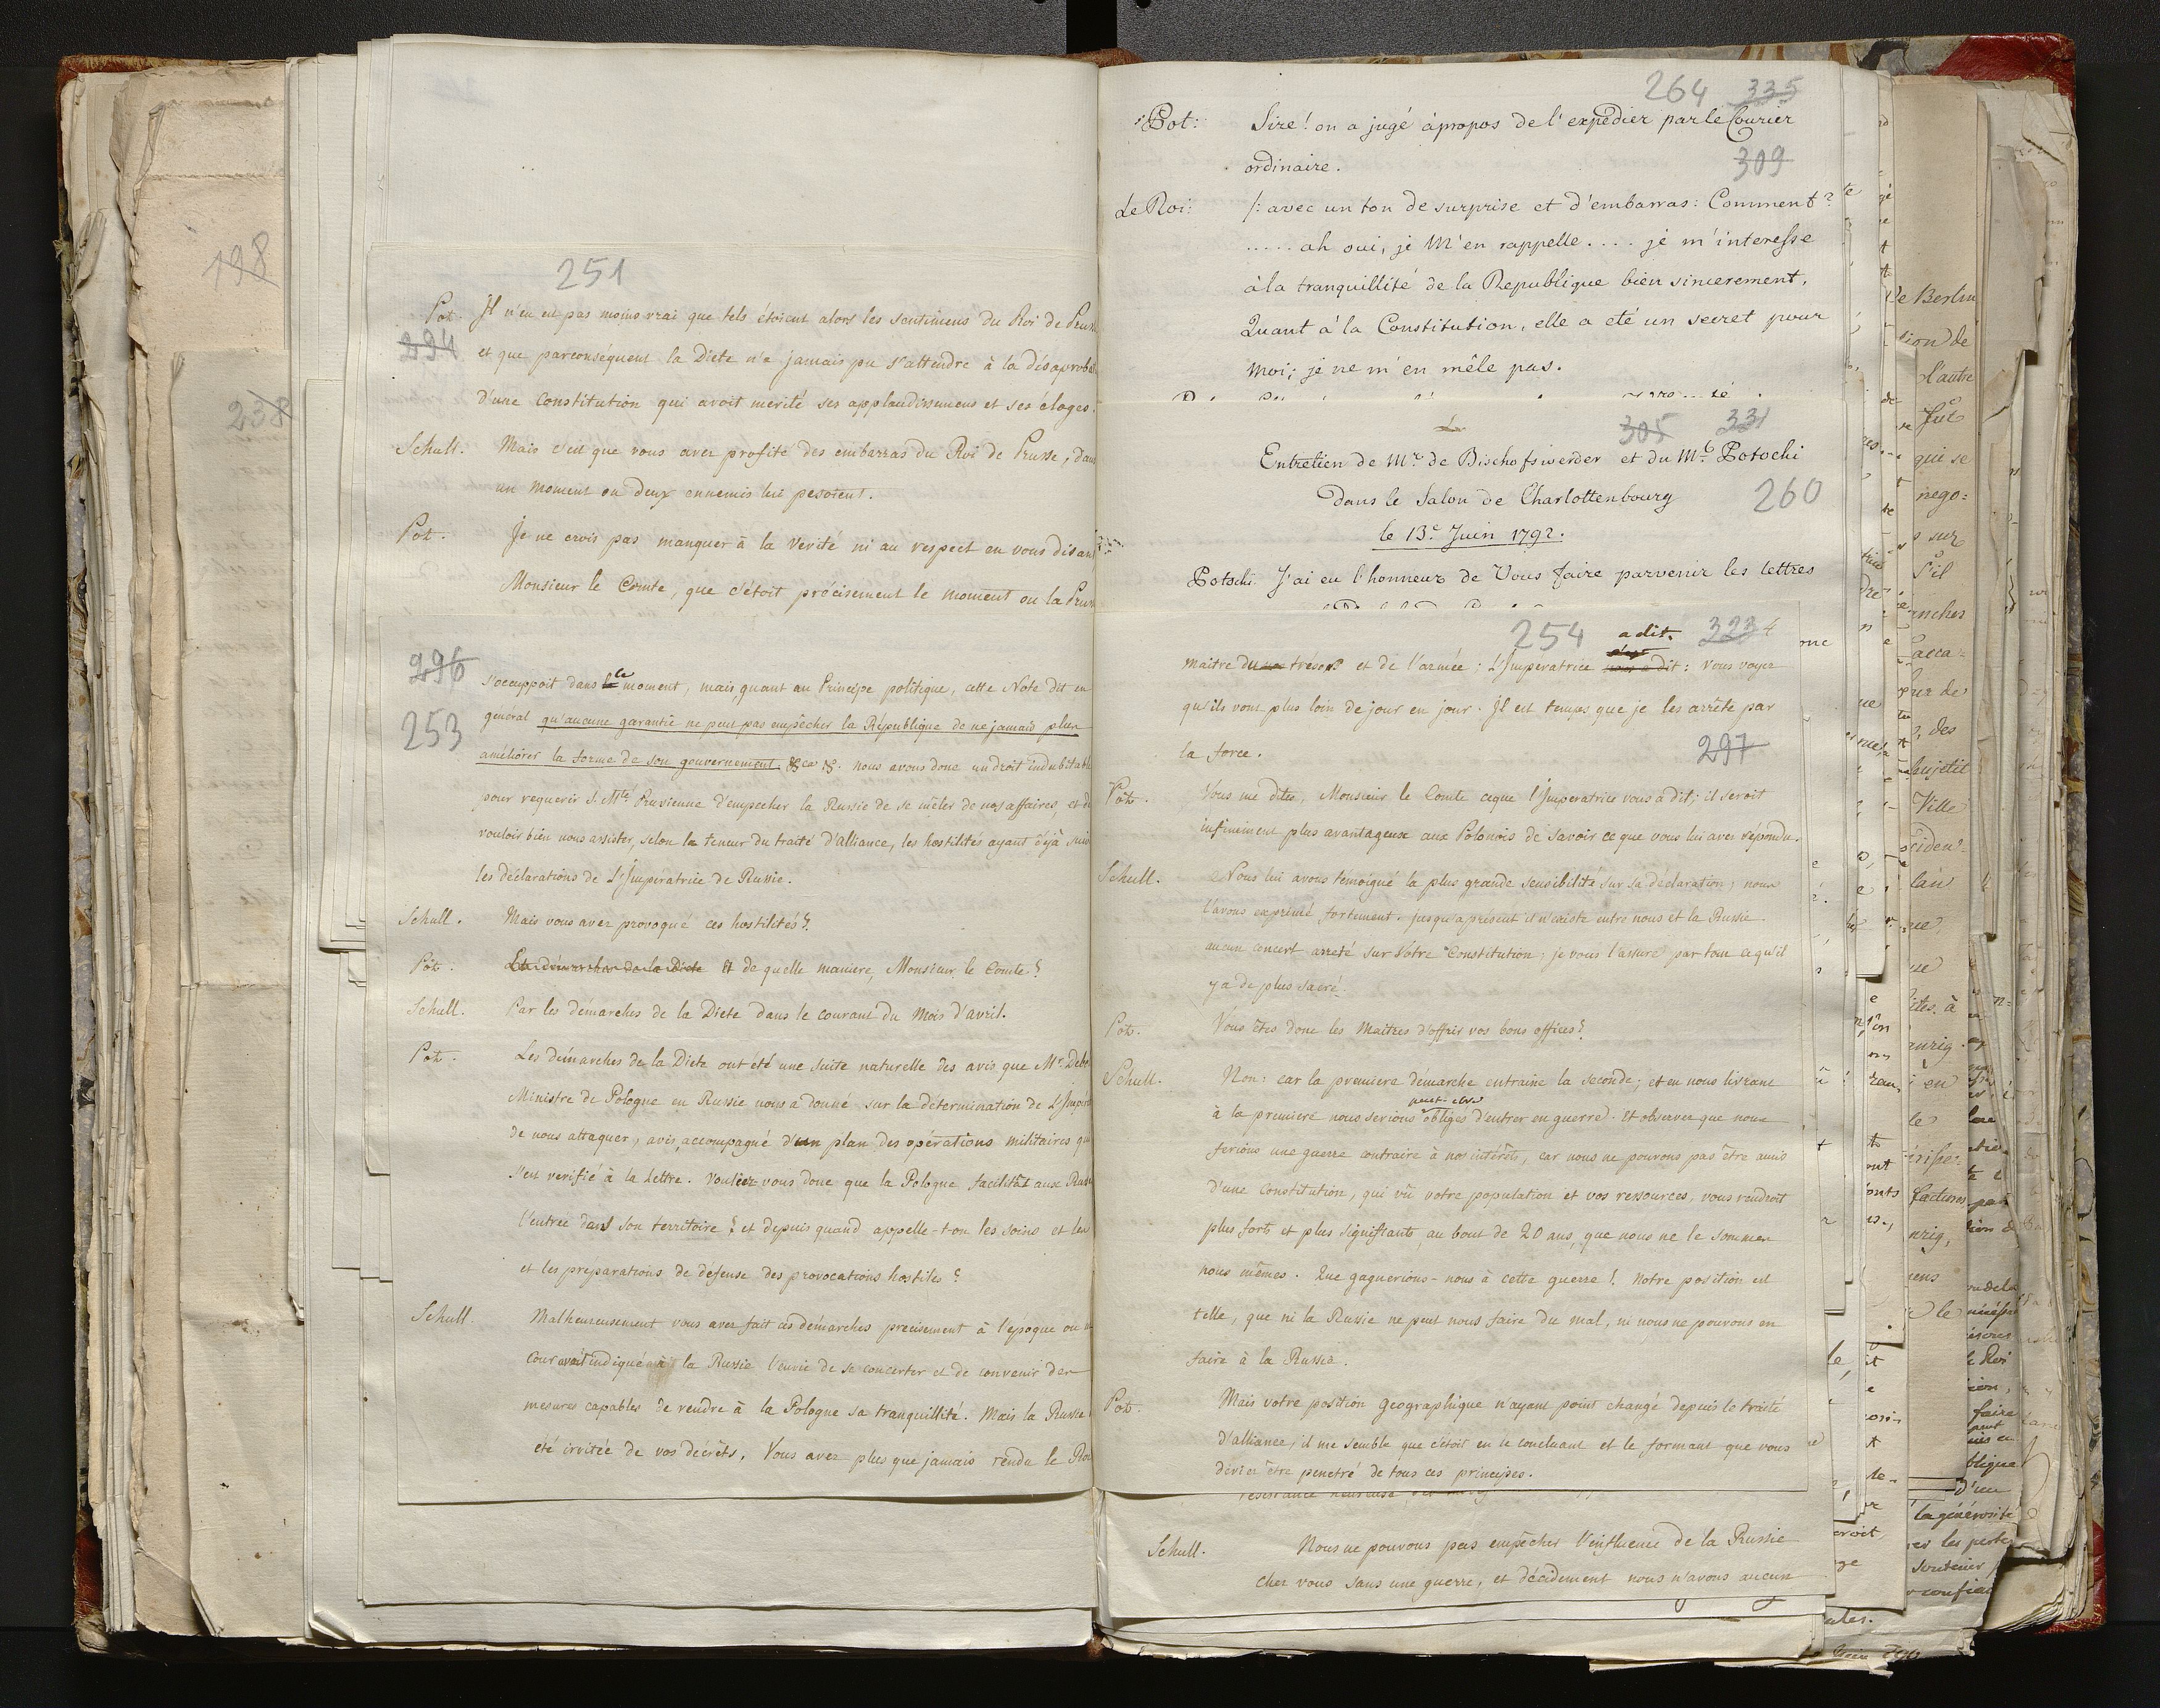 198
238
251
Pot. Il n'en est pas moins vrai que tels étoient alors les sentimens du Roi de
294
et que parconséquent la Diete n'a jamais pu s'attendre à la
d'une Constitution qui avoit merité ses applaudissemens et ses éloges.
Schull. Mais c'est que vous avez profité des embarras du Roi de Prusse, dans
un moment ou deux ennemis lui pesoient.
Pot. Je ne crois pas manquer à la Verité ni au respect en vous disant
Monsieur le Comte, que c'étoit précisement le moment ou la
296
253
s'occuppoit dans ce moment, mais quant au Principe politique, cette Note dit en
général qu'aucune garantie ne peut pas empêcher la République de ne jamais plus
améliorer la forme de son gouvernement nous avons donc un droit indubitable
pour requerir S. Mté Prusienne d'empecher la Russie de se mêler de nos affaires, et de
vouloir bien nous assister, selon la teneur du traité d'alliance, les hostilités ayant déjà suivi
les déclarations de L'Imperatrice de Russie.
Schull. Mais vous avez provoqué ces hostilités?
Pot. Les démarches de la Diete Et de quelle maniere, Monsieur le Comte?
Schull. Par les démarches de la Diete dans le courant du Mois d'avril.
Pot. Les démarches de la Diete ont été une suite naturelle des avis que Mr
Ministre de Pologne en Russie nous a donné sur la détermination de
de nous attaquer, avis, accompagné d'un plan des opérations militaires qui
s'est verifié à la Lettre. Vouliez vous donc que la Pologne facilitât aux
l'entrée dans son territoire? et depuis quand appelle-t-on les soins et les
et les preparations de défense des provocations hostiles?
Schull. Malheureusement vous avez fait ces démarches precisement à l'epoque ou
Cour avoit indiqué à la Russie l'envie de se concerter et de convenir des
mesures capables de rendre à la Pologne sa tranquillité. Mais la Russie
été irritée de vos décrêts. Vous avez plus que jamais rendu le Roi
264 335
Pot: Sire! on a jugé àpropos de l'expedier par le Courier
ordinaire.
309
Le Roi: /: avec un ton de surprise et d'embarras: Comment?
..... ah oui, je M'en rappelle.... je m'interesse
à la tranquillité de la Republique bien sincerement.
Quant à la Constitution, elle a eté un secret pour
moi; je ne m'en mêle pas.
305 331
Entretien de Mr. de Bischofswerder et du Mr. Potocki
Dans le Salon de Charlottenbourg
260
le 13e Juin 1792.
Potocki. J'ai eu l'honneur de Vous faire parvenir les lettres
254 a dit. 323 4
maitre du trésor et de l'armée; L'Imperatrice a dit: vous voyez
qu'ils vont plus loin de jour en jour. Il est temps que je les arrête par
la force.
297
Pot. Vous me dites, Monsieur le Comte ceque l'Imperatrice vous a dit; il seroit
infiniment plus avantageux aux Polonois de savoir ce que vous lui avez répondu.
Schull. Nous lui avons témoigné la plus grande sensibilité sur sa déclaration; nous
l'avons exprimé fortement. jusqu'apresent il n'existe entre nous et la Russie
aucun concert arreté sur Votre Constitution; je vous l'assure par tout cequ'il
y a de plus sacré.
Pot. Vous êtes donc les Maitres d'offrir vos bons offices?
Schull. Non: car la premiere démarche entraine la seconde; et en nous livrant
peut-etre
à la premiere nous serions obligés d'entrer en guerre. Et observez que nous
ferions une guerre contraire à nos intérêts, car nous ne pouvons pas être amis
d'une Constitution, qui vû votre population et vos ressources, vous rendroit
plus forts et plus signifiants au bout de 20 ans, que nous ne le sommes
nous mêmes. Que gagnerions-nous à cette guerre! Notre position est
telle, que ni la Russie ne peut nous faire du mal, ni nous ne pouvons en
faire à la Russie.
Pot. Mais votre position geographique n'ayant point changé depuis le traité
d'alliance, il me semble que c'étoit en le concluant et le formant que vous
deviez être penetré de tous ces principes.
Schull. Nous ne pouvons pas empêcher l'influence de la Russie
chez vous sans une guerre, et décidement nous n'avons aucun